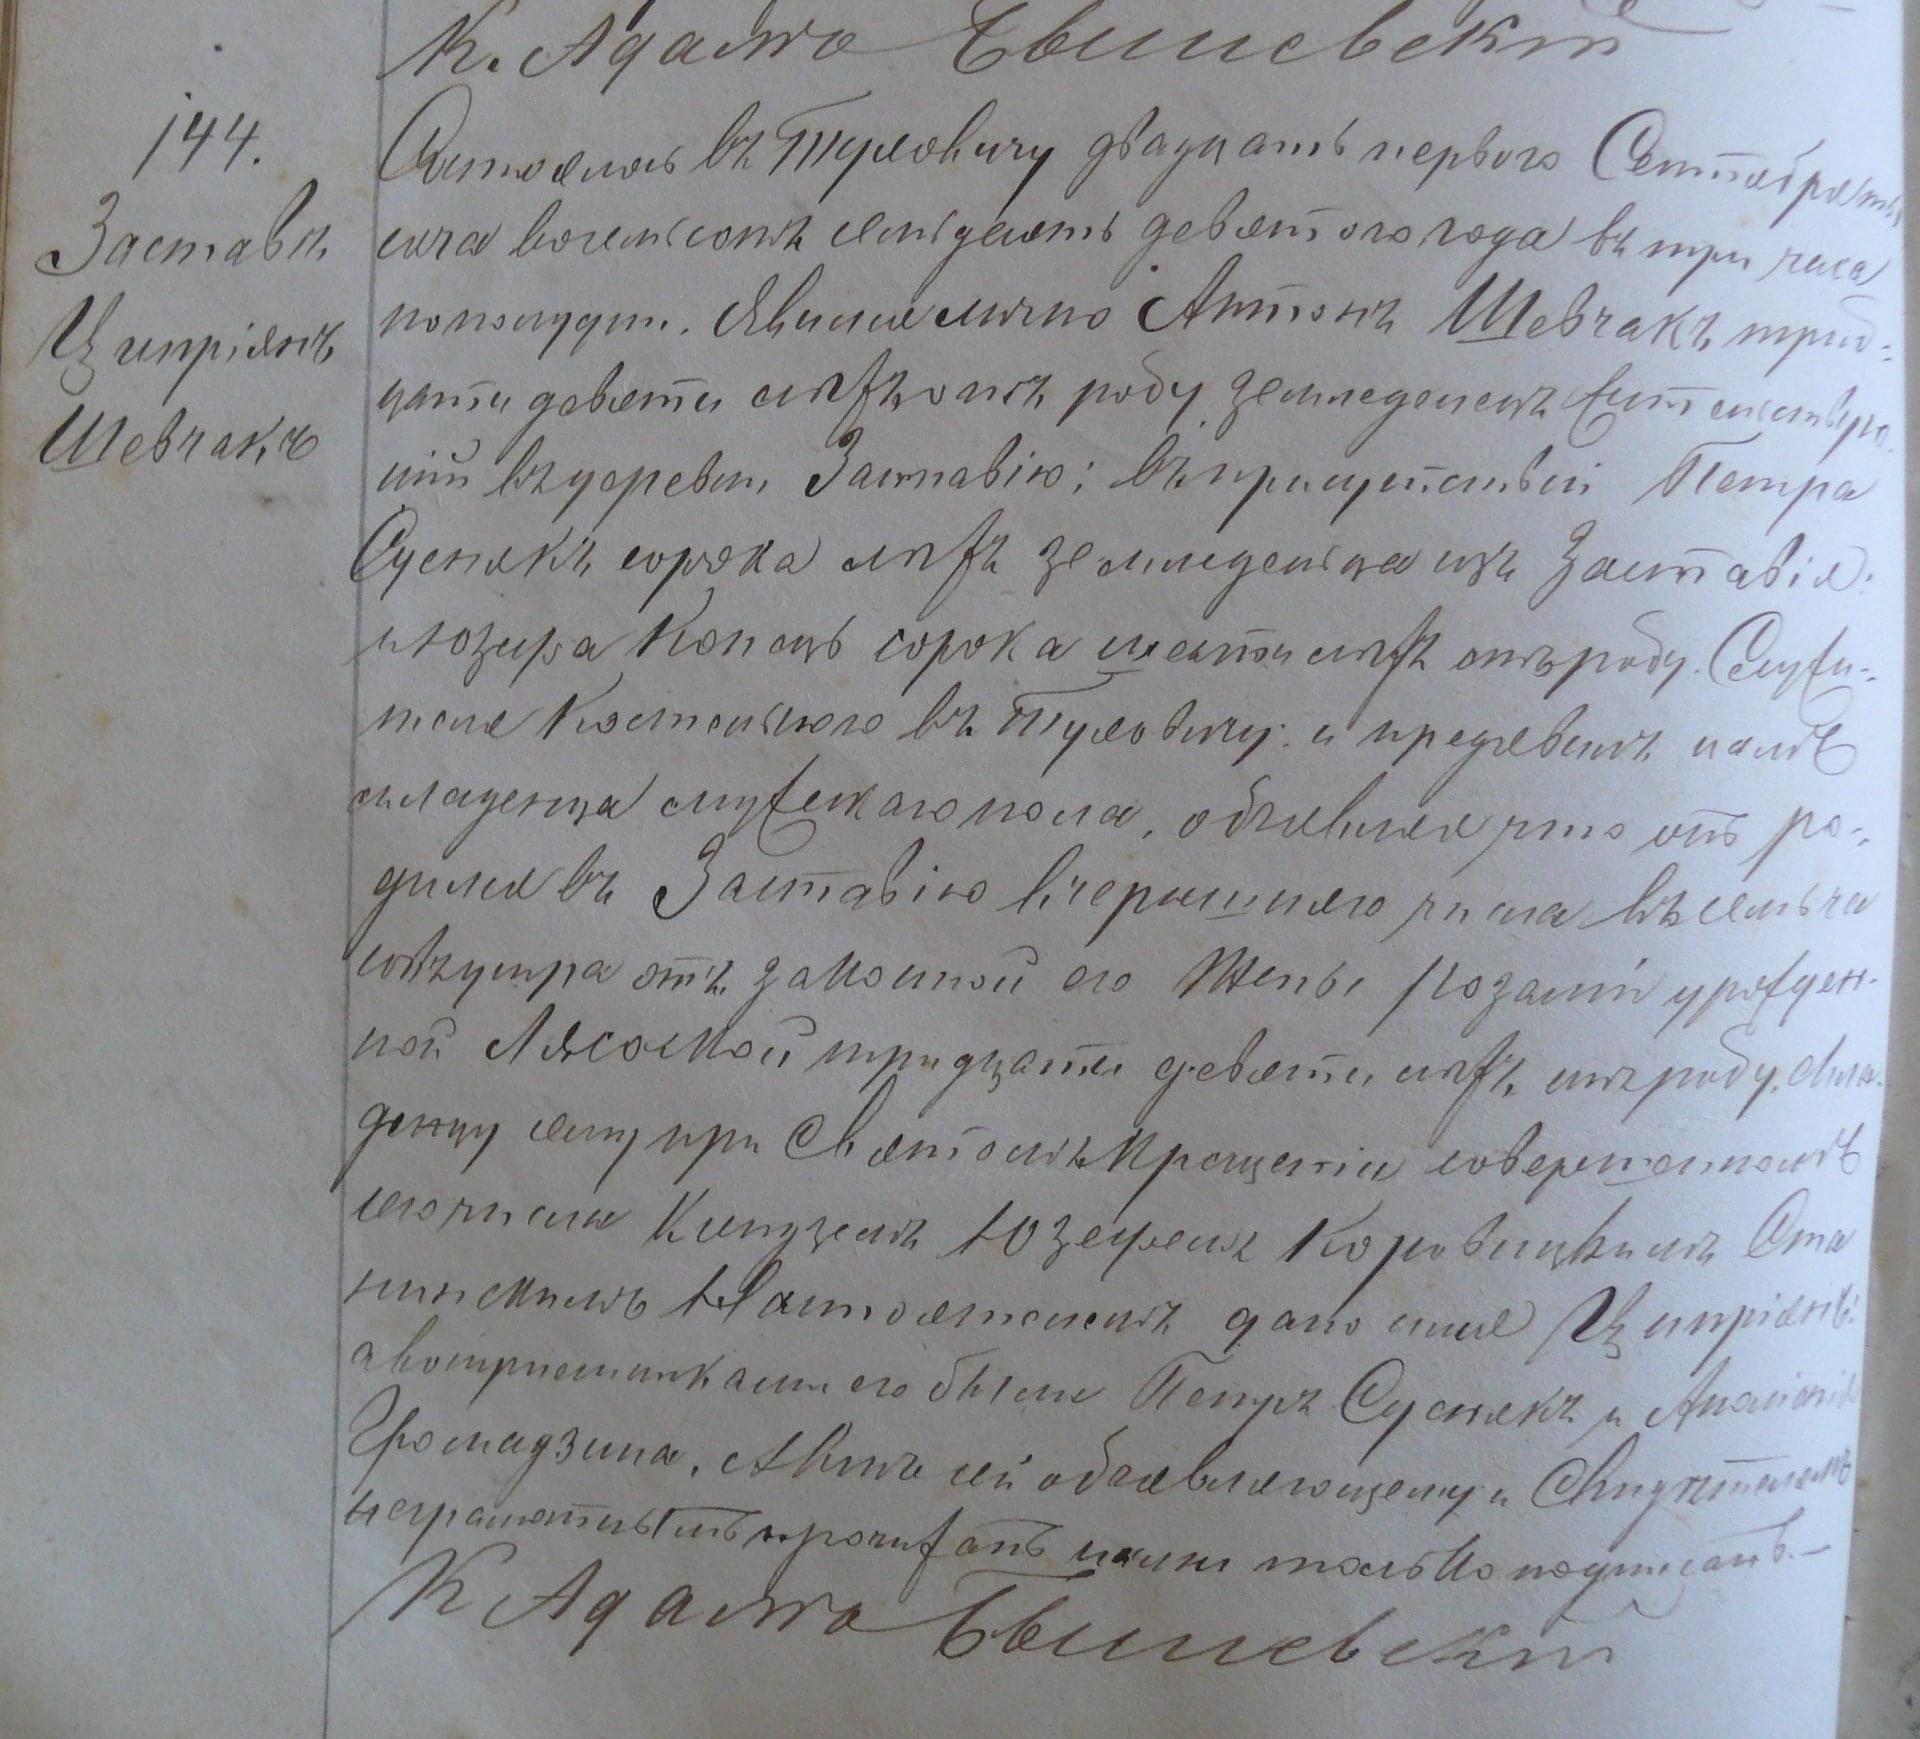 К. Адамъ Ѣвишевскій
144.
Заставье
Ципріянъ
Шевчакъ
Состоялось въ Туховичу двадцать перваго Сентября мѣ
сяца восемьсотъ семьдесятъ девятого года въ три часа
пополудни. Явился лично Антонъ Шевчакъ, трид-
цати девяти лѣтъ отъ роду земледелецъ жительствую
щій въ деревни Заставію; въ присутствіи Петра
Суснякъ, сорока лѣтъ земледельца изъ Заставія:
и Юзефа Копецъ сорока шести лѣтъ отъ роду. Служи-
теля Костельного въ Туховичу; и предъявилъ намъ
младенца мужеского пола, объявляя что онъ ро-
дился въ Заставію вчерашняго числа въ семь ча
совъ утра отъ законной его Жены Розаліи урожден-
ной Лясоцкой тридцати девяти лѣтъ отъ роду. Мла-
денцу сему при Святомъ Крещеніи совершенномъ
сего числа Ксендземъ Юзефемъ Коровицкимъ Ста
нинскимъ Настоятелемъ дано имя Ципріянъ:
а воспріемниками его были Петръ Суснякъ и Аполіонія
Громадзина. Актъ сей объявляющему и Свидѣтелямъ
неграмотнымъ прочитанъ нами только подписанъ.—
К Адамъ Ѣвишевскій